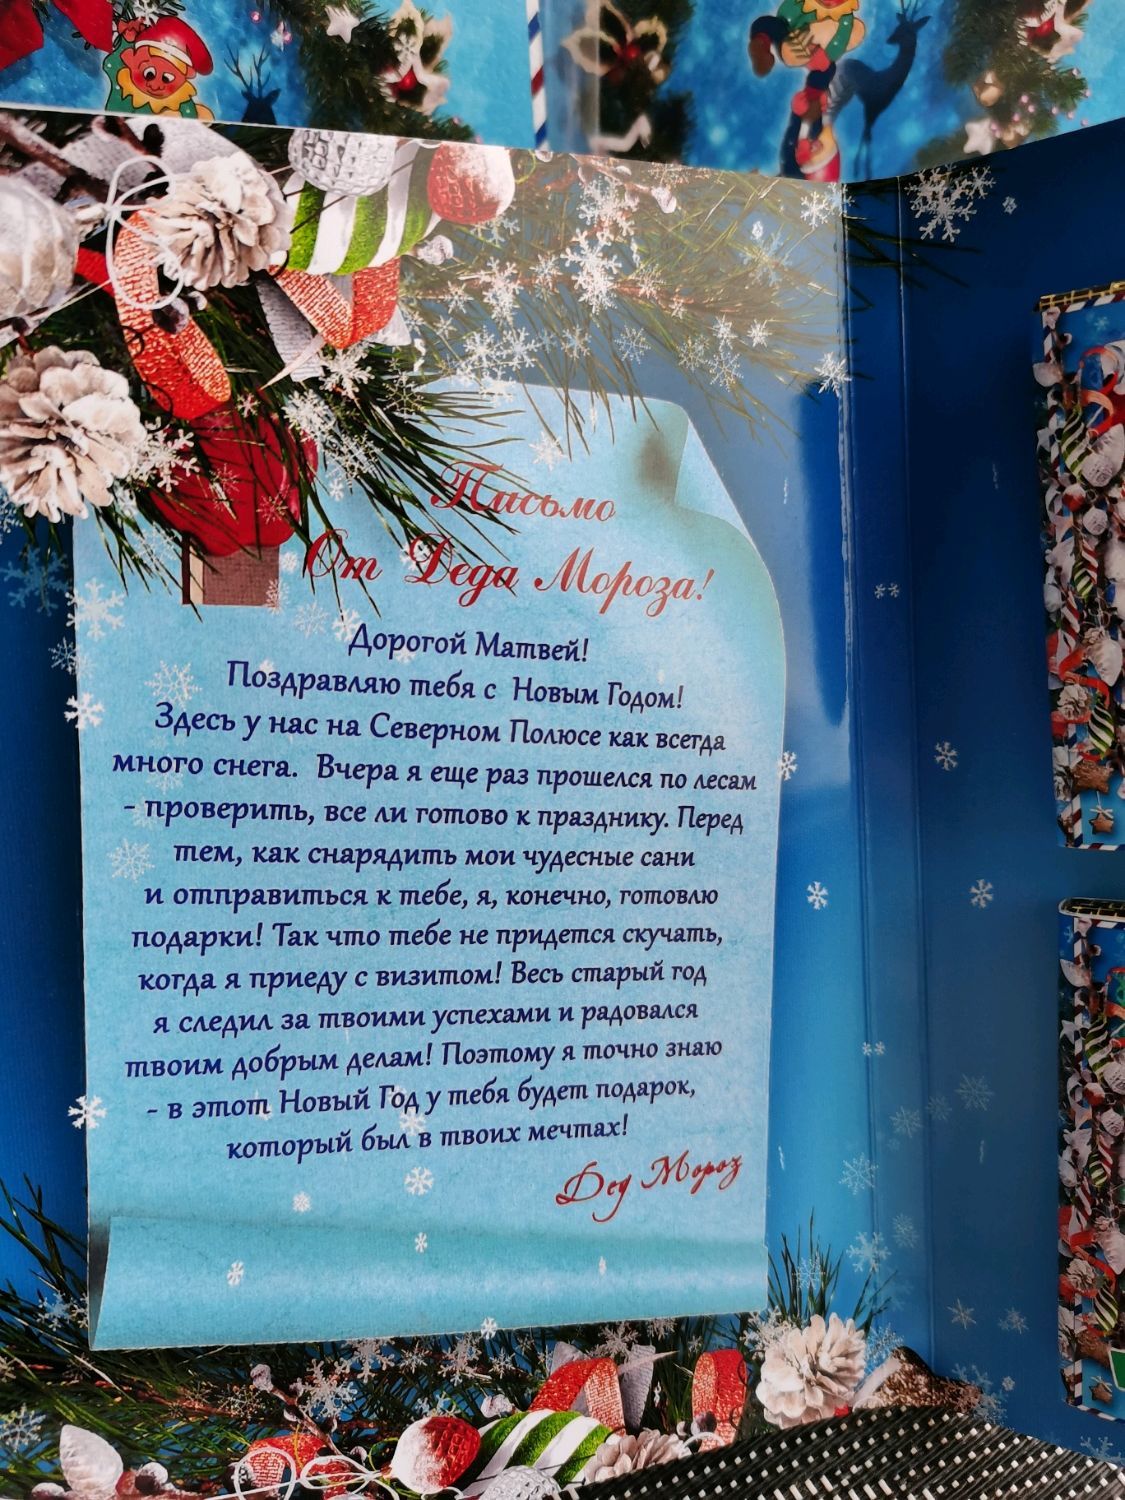 Письмо
От Деда Мороза!
Дорогой Матвей!
Поздравляю тебя с Новым Годом!
Здесь у нас на Северном Полюсе как всегда
много снега. Вчера я еще раз прошелся по лесам
- проверить, все ли готово к празднику. Перед
тем, как снарядить мои чудесные сани
и отправиться к тебе, я, конечно, готовлю
подарки! Так что тебе не придется скучать,
когда я приеду с визитом! Весь старый год
я следил за твоими успехами и радовался
твоим добрым делам! Поэтому я точно знаю
- в этот Новый Год у тебя будет подарок,
который был в твоих мечтах!
Дед Мороз